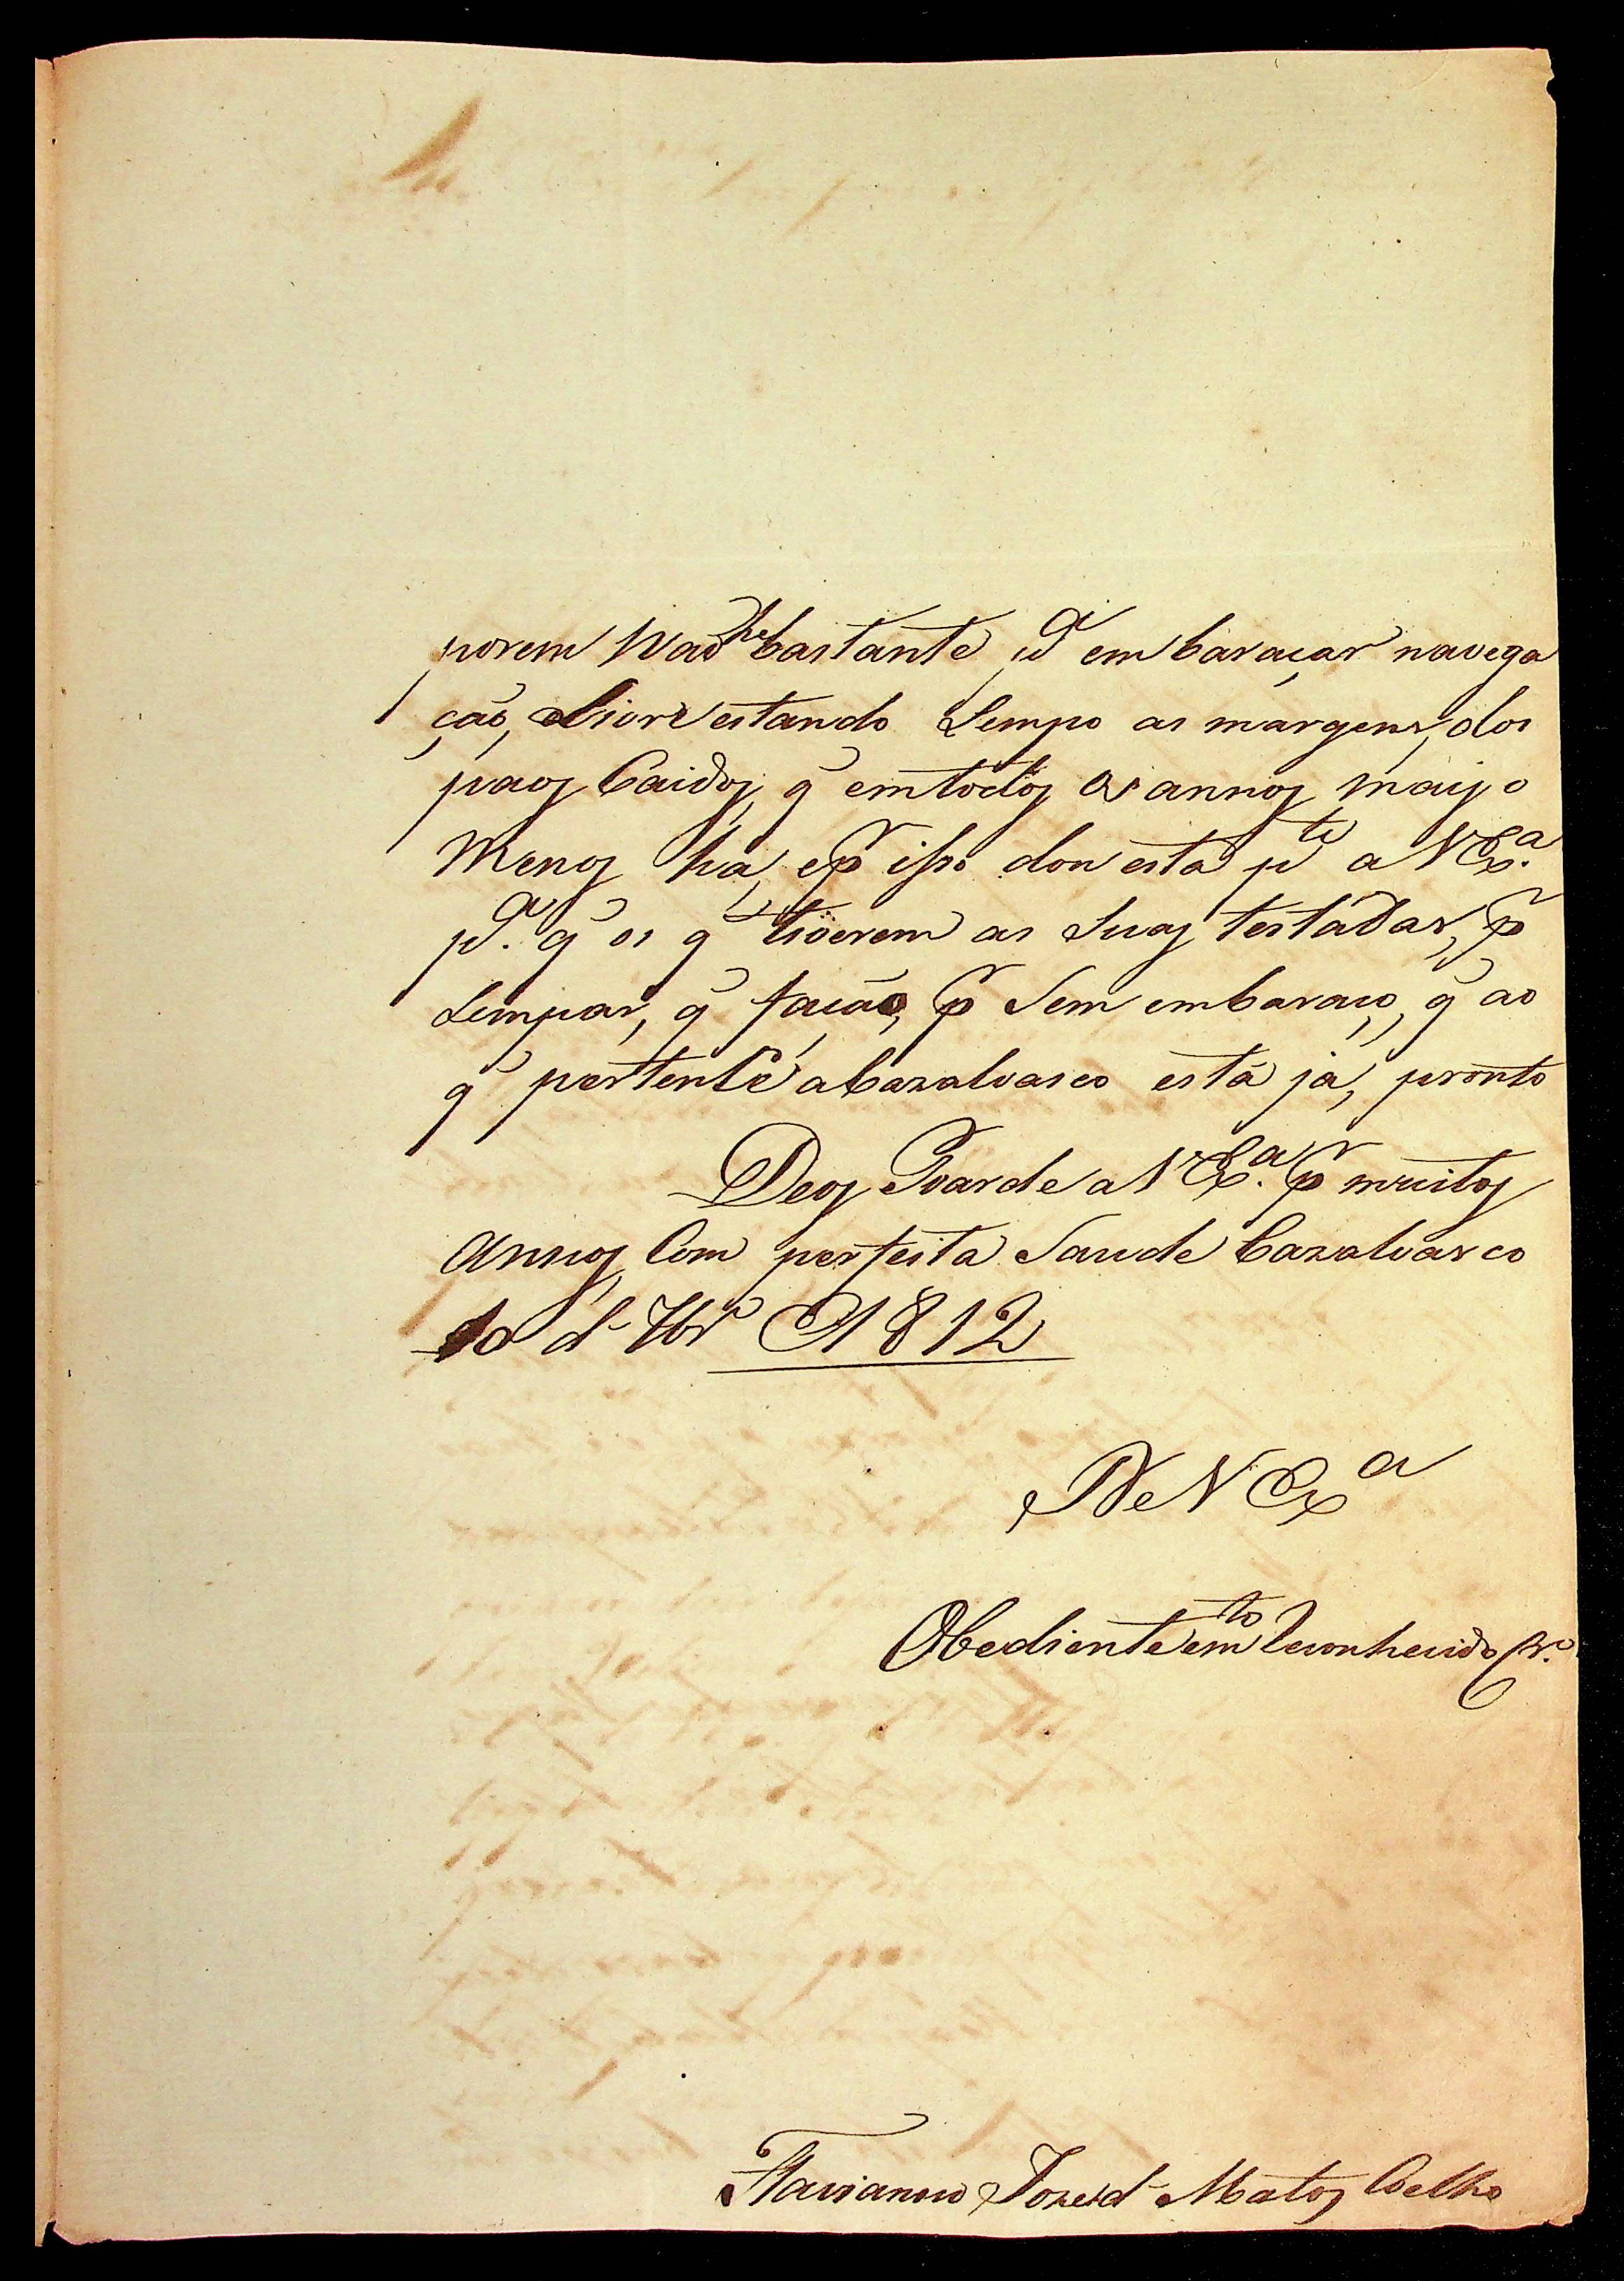 porem Naõ he bastante p.ª embaraçar navega
ção, eLivre estando Lempo as margens, dos
paos Caidos, q̃ emtodos os annos mais, o
Menos ha, ep.r isso dou esta p.te a V Ex.ª
p.ª q̃ os q̃ tiverem as Suas testadas, p.r
Lempar, q̃ fação, p.r Sem embaraço, q̃ ao
q̃ pertence aCazalvasco está já, pronto
Deos Goarde a V Ex.ª p.r muitos
Annos, Com perfeita Saude Cazalvasco
10 d 7br.º 1812
De V Ex.ª
Obediente em.to Reconhecido Cr.º
Flavianno Joze d Matos Coelho